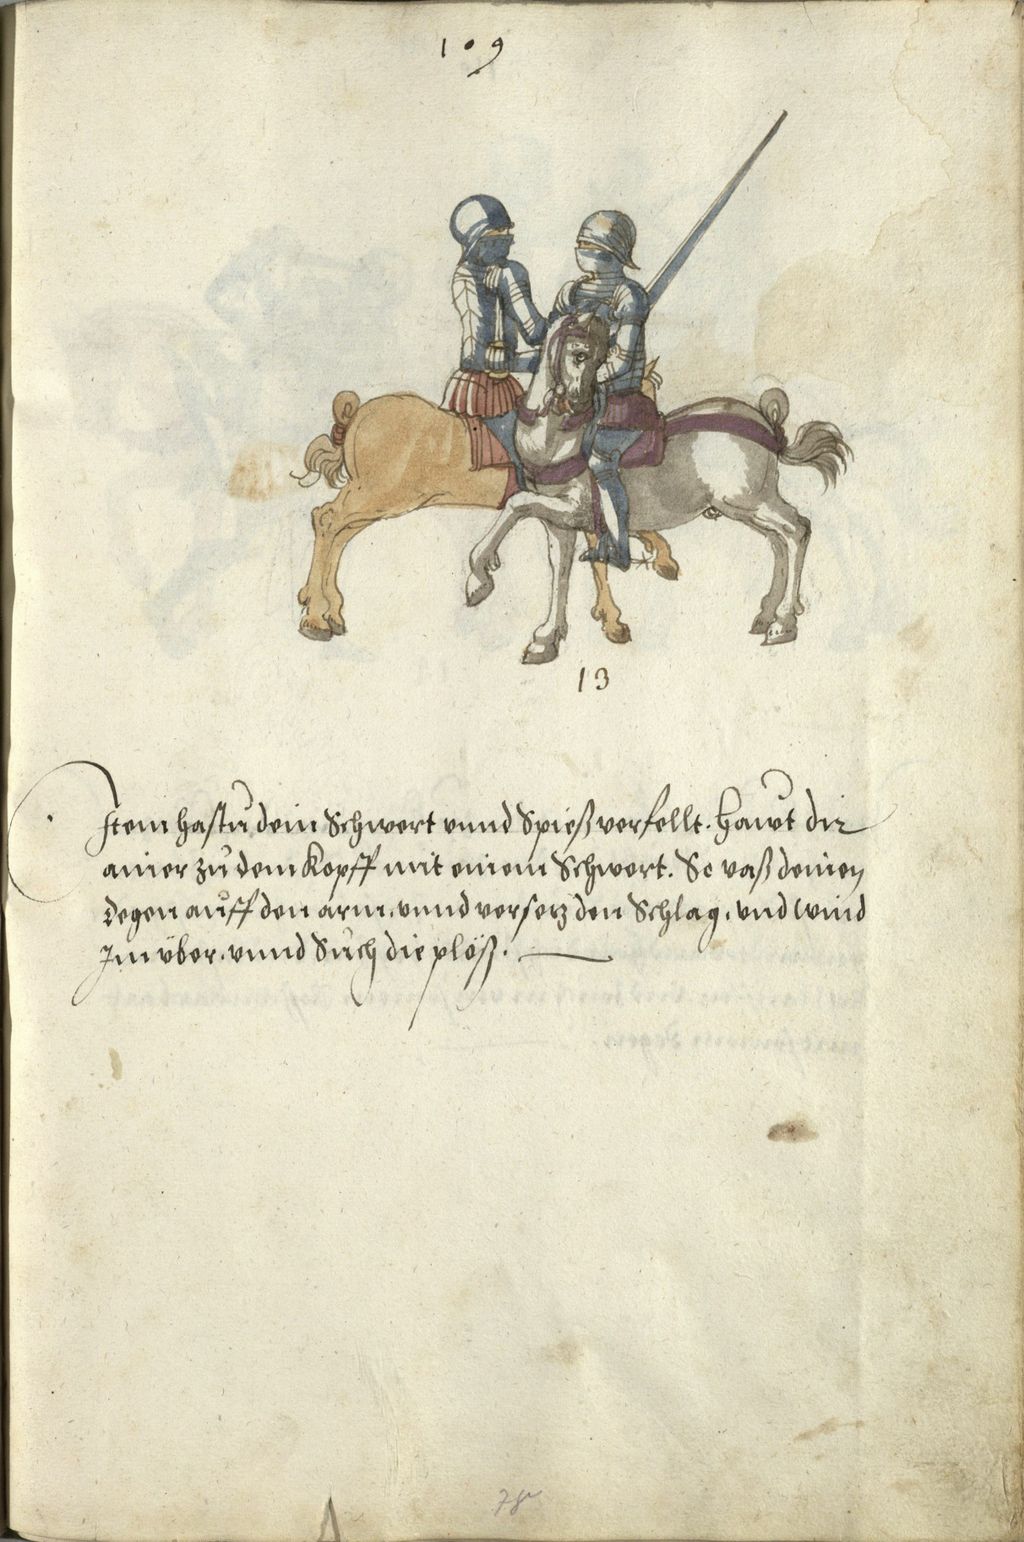 109
13
Item hastu dein Schwert vnnd Spieß verfellt. Hawt dir
ainer zu dem Kopff mit einem Schwert. So vaß deinen
degen auff den arm. vnnd versetz den Schlag. vnd wind
Im über. vnnd Such die plöß.
78